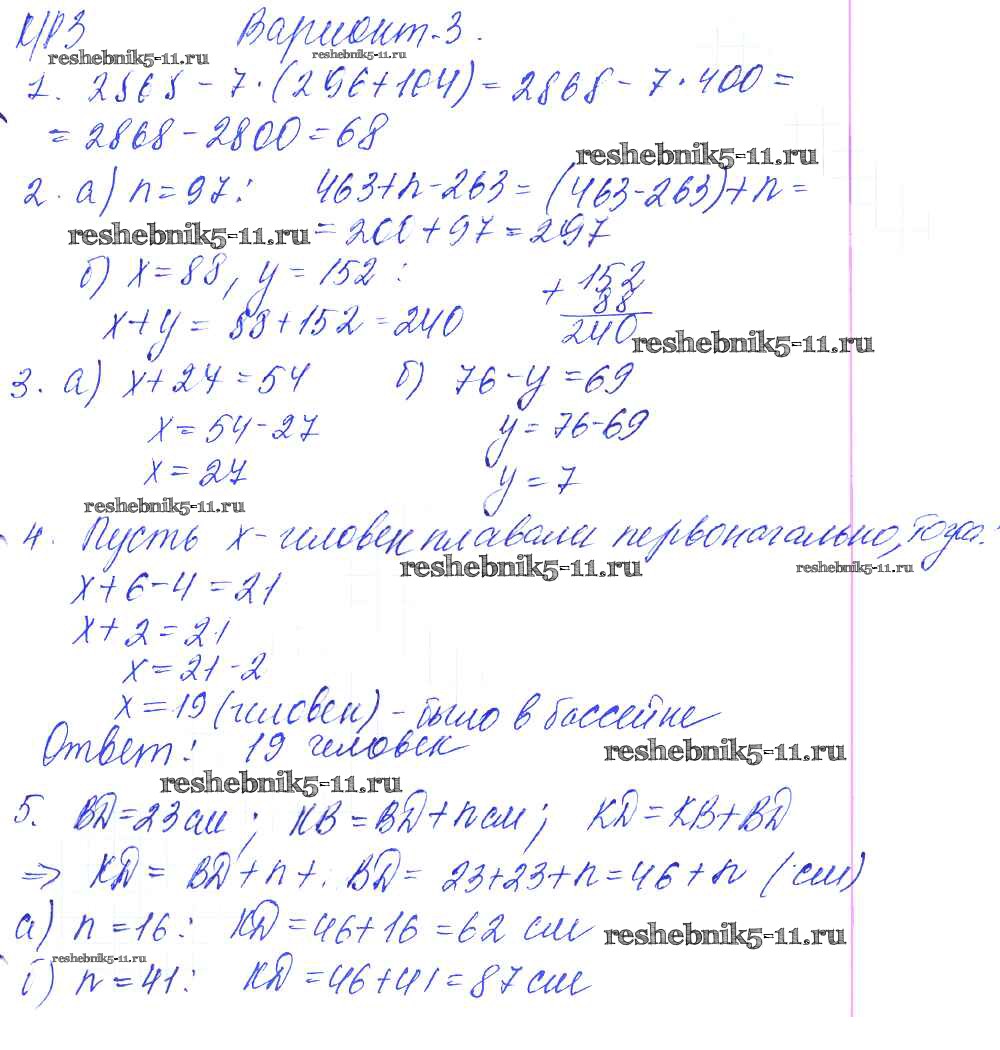 К/Р3 Вариант-3.
reshebnik5-11.ru reshebnik5-11.ru
1. 2868 - 7·(296+104) = 2868 - 7·400 =
= 2868 - 2800 = 68
reshebnik5-11.ru
2. а) n = 97: 463+n-263 = (463-263)+n =
reshebnik5-11.ru = 200 + 97 = 297
б) x = 88, y = 152 :
x+y = 88+152 = 240
+ 152
88
240
reshebnik5-11.ru
3. а) x+27 = 54 б) 76 - y = 69
x = 54 - 27 y = 76-69
x = 27 y = 7
reshebnik5-11.ru
4. Пусть x - человек плавали первоначально, тогда:
reshebnik5-11.ru reshebnik5-11.ru
x+6-4 = 21
x+2 = 21
x = 21 - 2
x = 19 (человек) - было в бассейне
Ответ: 19 человек
reshebnik5-11.ru
reshebnik5-11.ru
5. BD = 23 см ; KB = BD + n см ; KD = KB + BD
=> KD = BD + n + BD = 23+23+n = 46 + n (см)
а) n = 16: KD = 46+16 = 62 см
reshebnik5-11.ru
reshebnik5-11.ru
б) n = 41: KD = 46+41 = 87 см